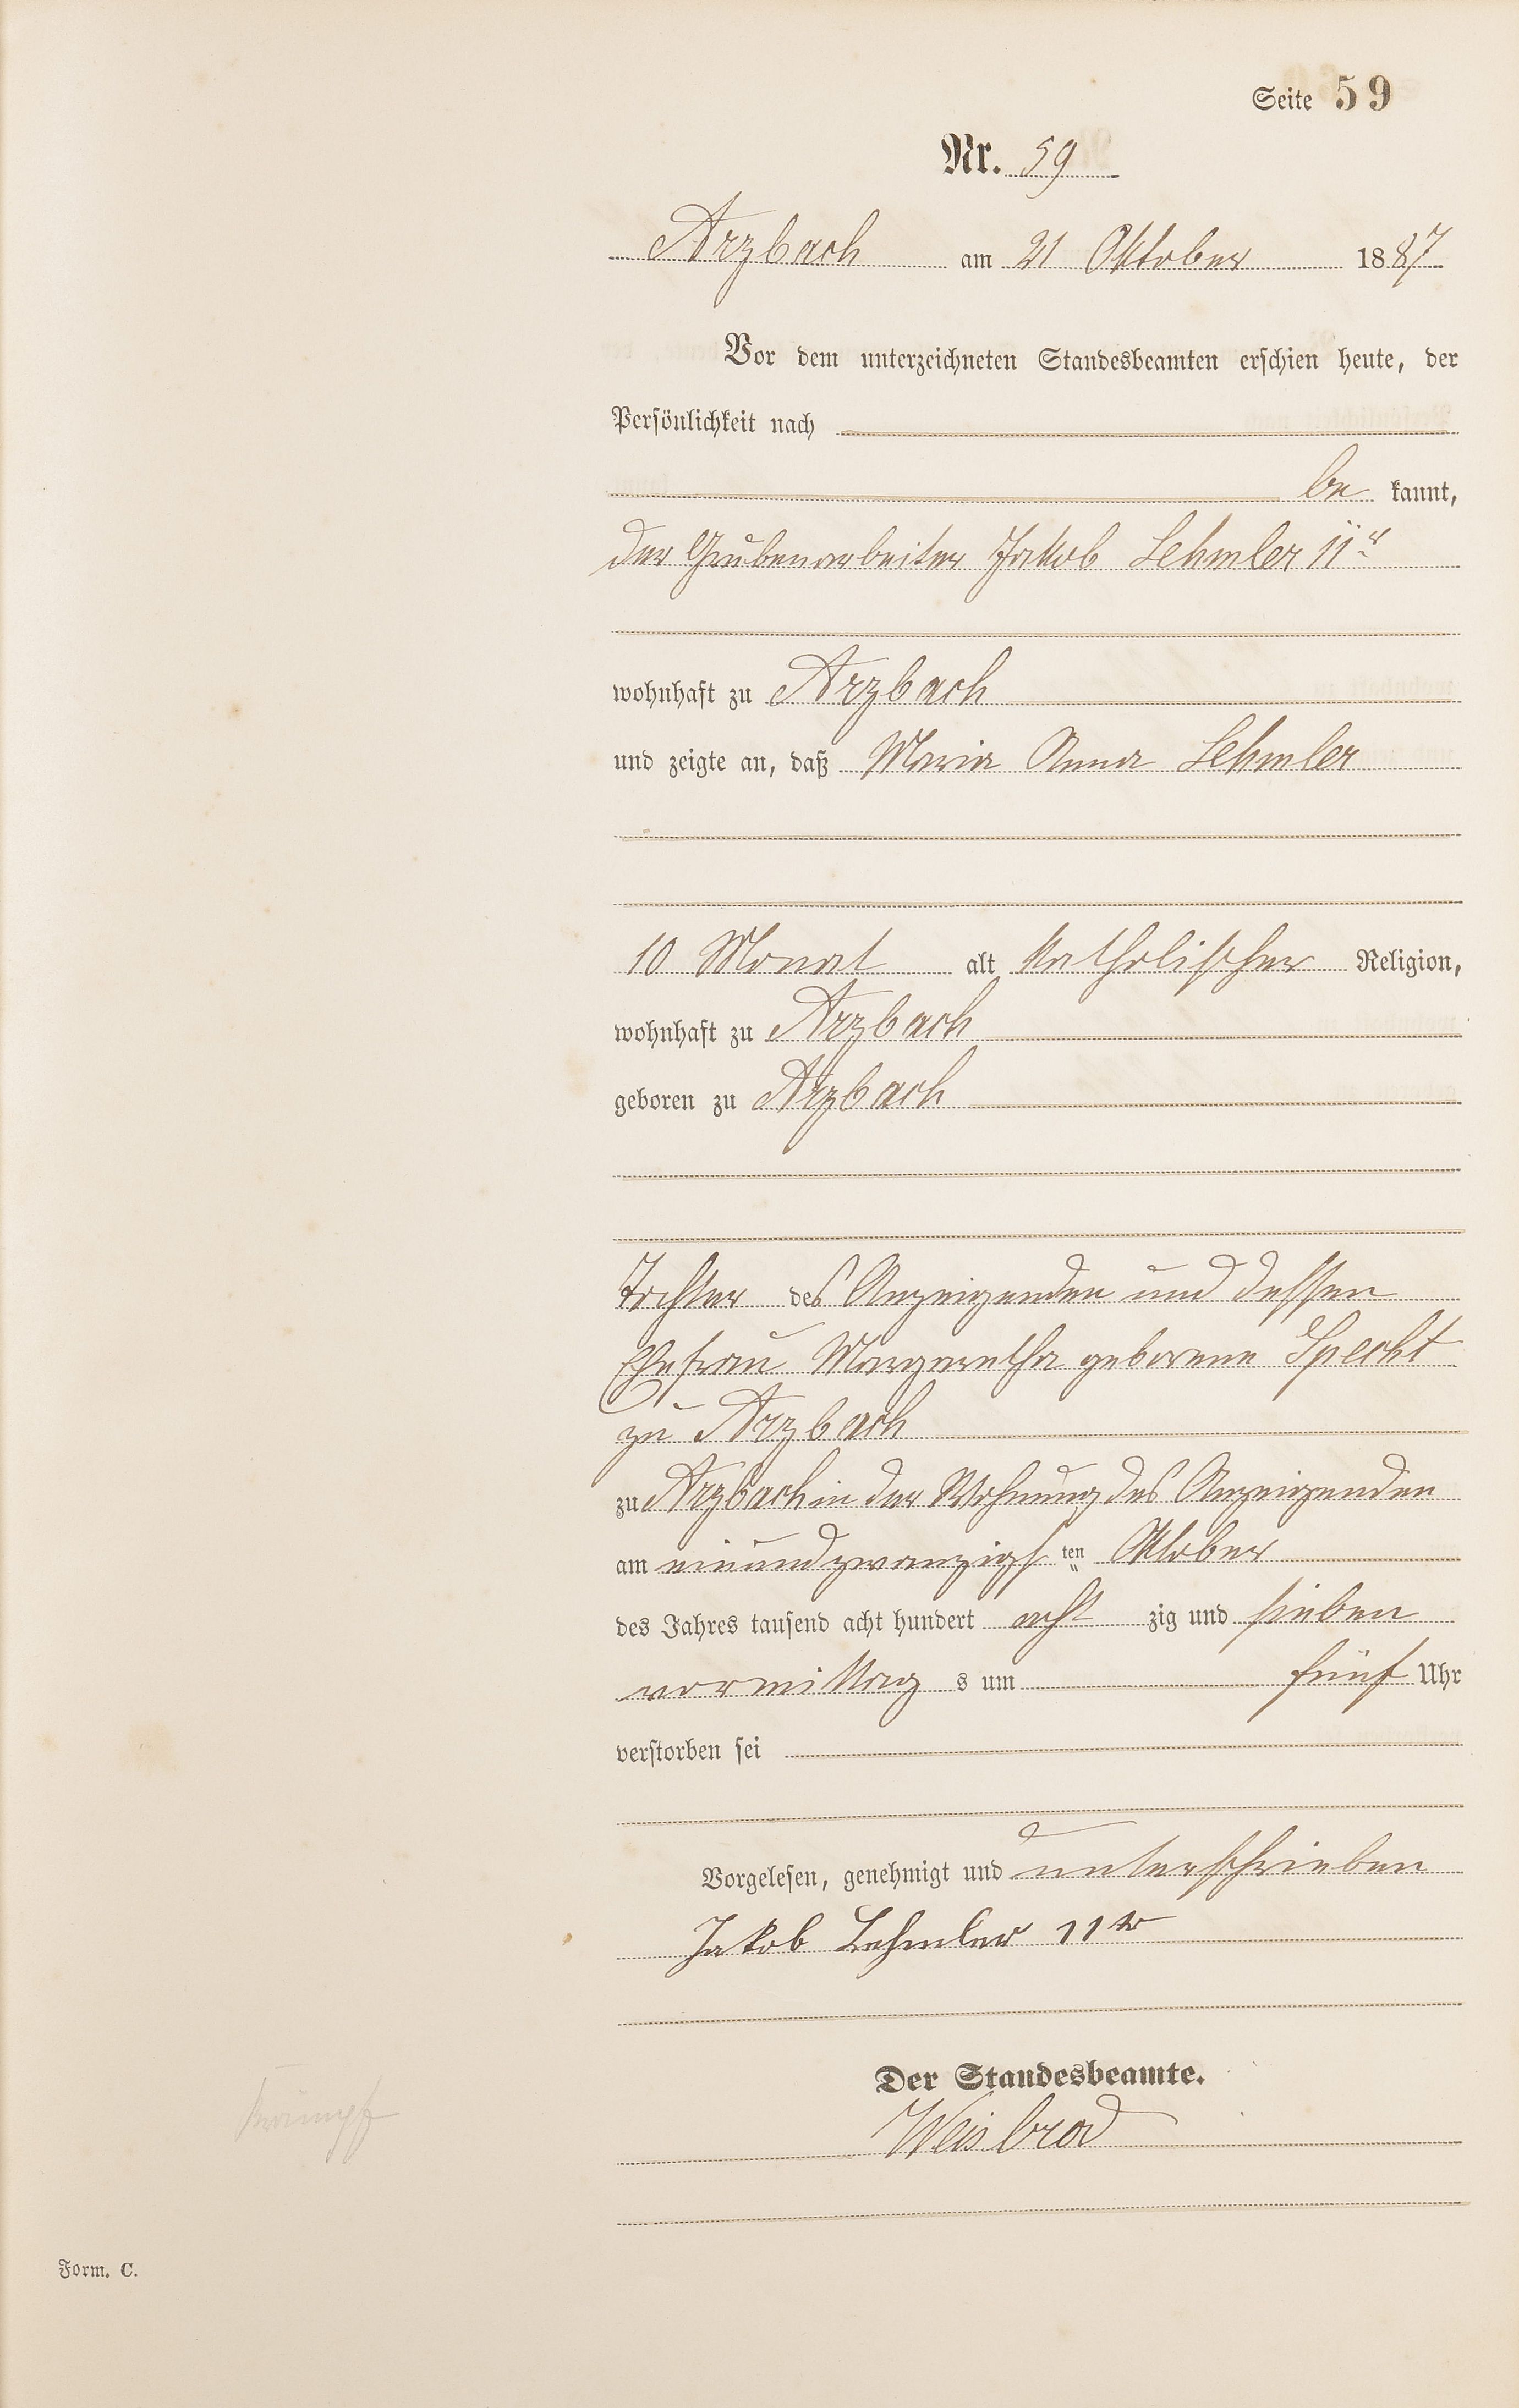 Seite 59
Nr. 59
Arzbach am 21 Oktober 1887
Vor dem unterzeichneten Standesbeamten erschien heute, der
Persönlichkeit nach
be kannt,
der Grubenarbeiter Jakob Lehmler IIr
wohnhaft zu Arzbach
und zeigte an, daß Maria Anna Lehmler
10 Monat alt katholischer Religion,
wohnhaft zu Arzbach
geboren zu Arzbach
Tochter des Anzeigenden und dessen
Ehefrau Margaretha geborene Specht
zu Arzbach
zu Arzbach in der Wohnung des Anzeigenden
am einundzwanzigsten Oktober
des Jahres tausend acht hundert acht zig und sieben
vormittag s um fünf Uhr
verstorben sei
Vorgelesen, genehmigt und unterschrieben
Jakob Lehmler 11tr
Der Standesbeamte.
Weisbrod
Krämpf
Form. C.